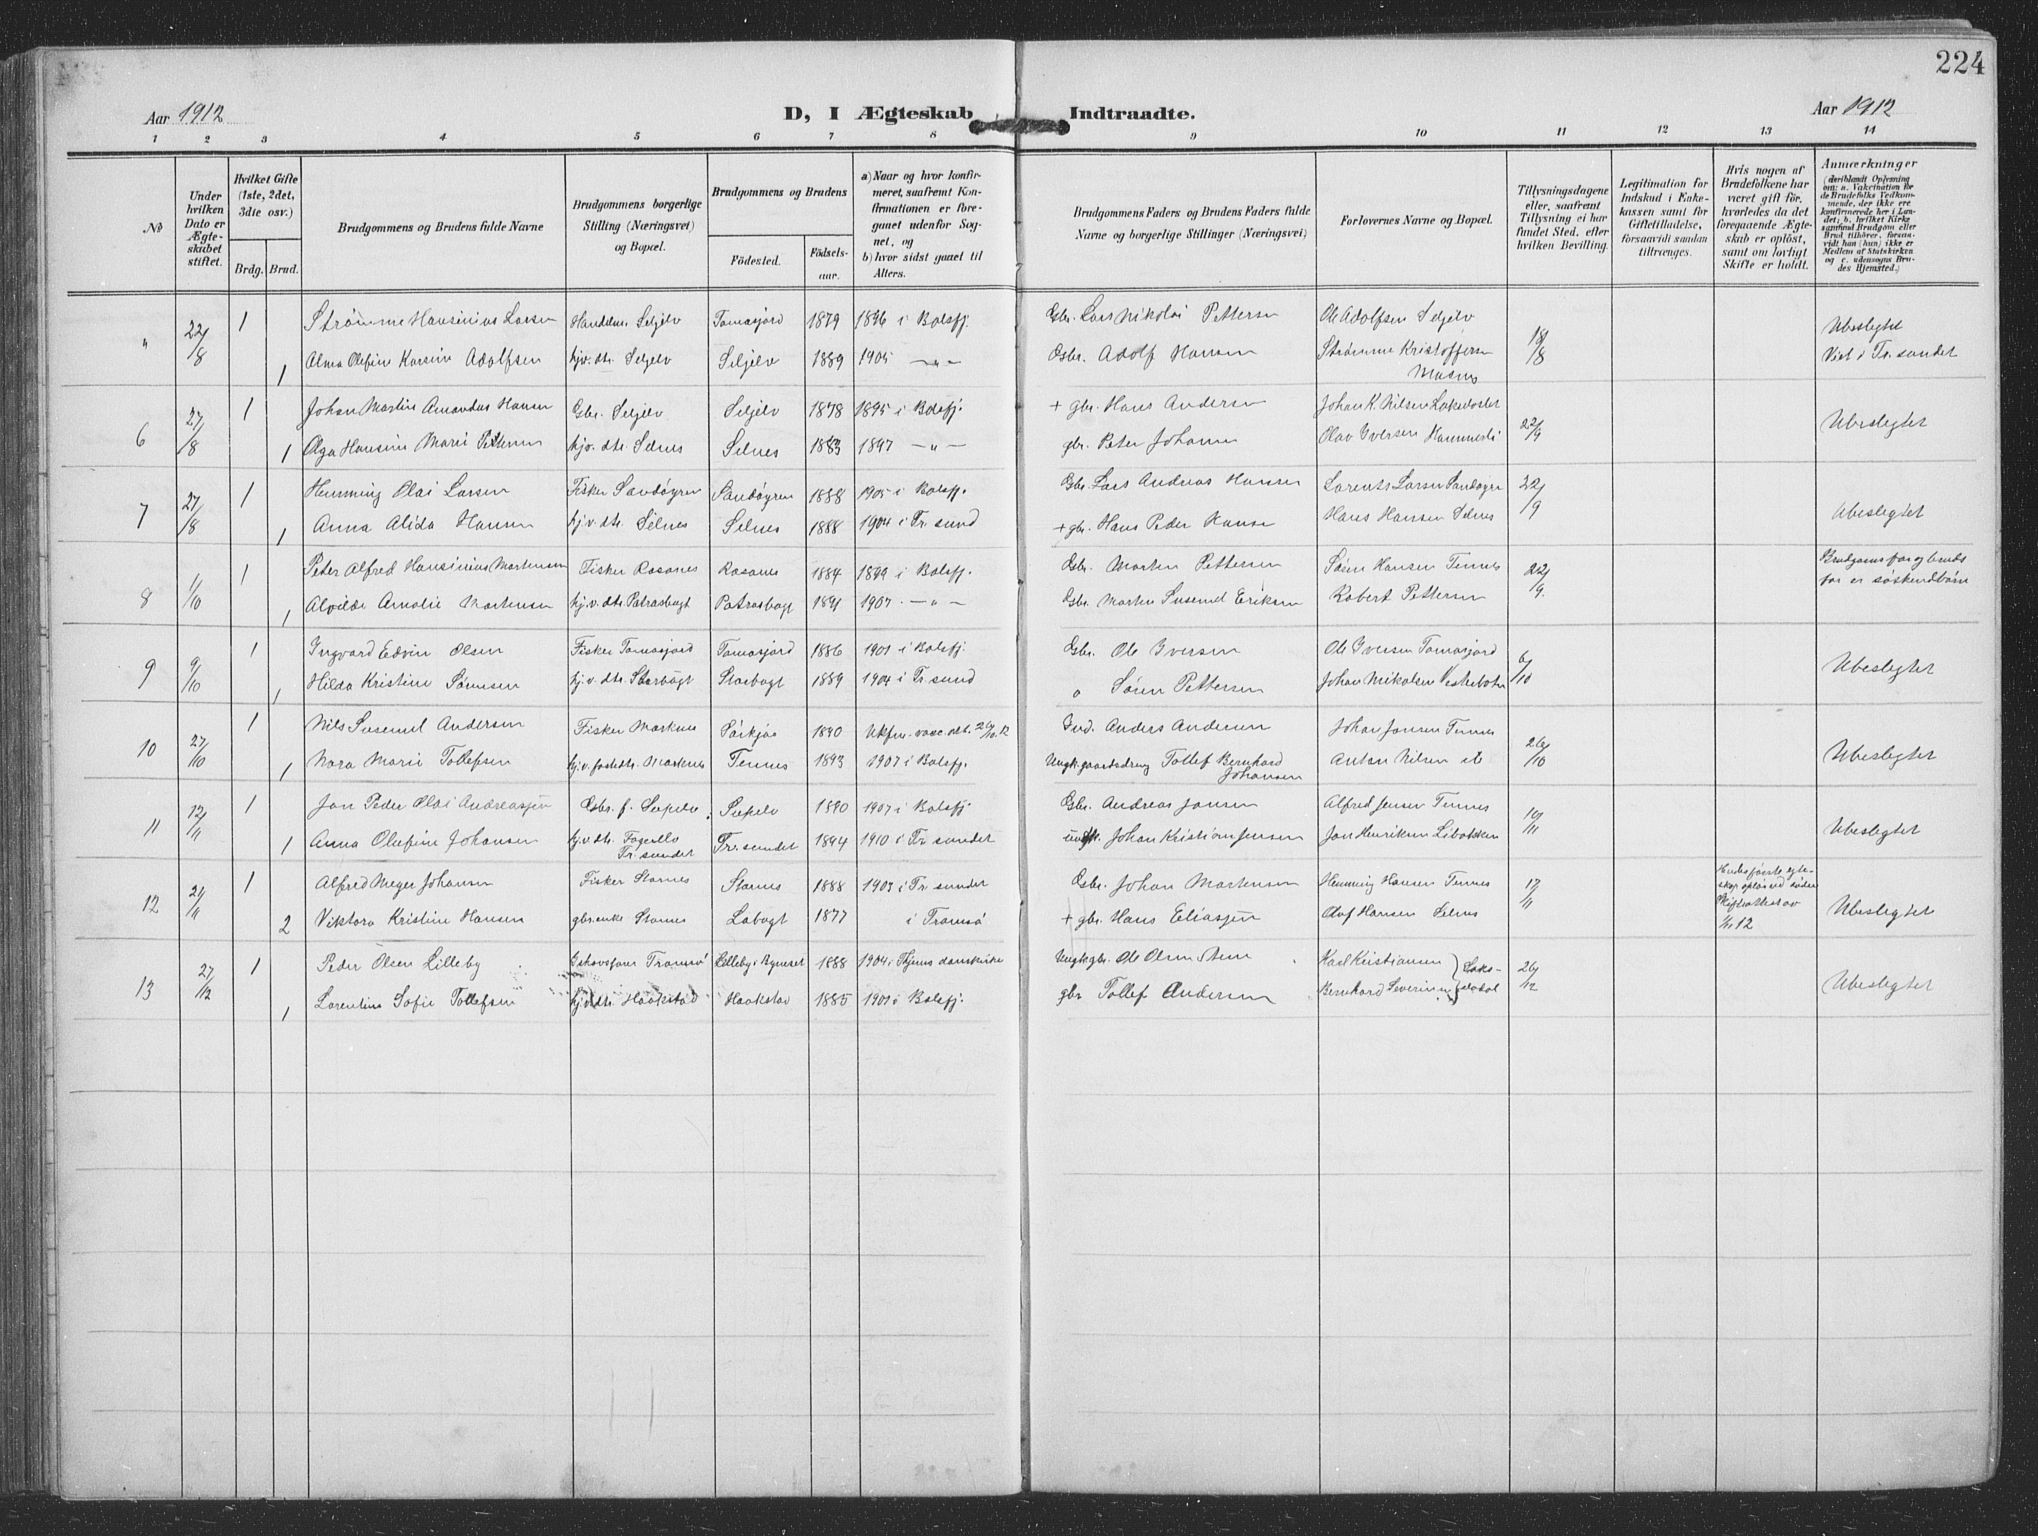 224
Aar 1912
D, I Ægteskab Indtraadte.
Aar 1912
1 2 3 4 5 6 7 8 9 10 11 12 13 14
№
Under hvilken Dato er Ægteskabet stiftet.
Hvilket Gifte (1ste, 2det, 3die osv.)
Brdg. Brud.
Brudgommens og Brudens fulde Navne
Brudgommens borgerlige Stilling (Næringsvei) og Bopæl.
Brudgommens og Brudens
Födested.
Födselsaar.
a) Naar og hvor konfirmeret, saafremt Konfirmationen er foregaaet udenfor Sognet, og
b) hvor sidst gaaet til Alters.
Brudgommens Faders og Brudens Faders fulde Navne og borgerlige Stillinger (Næringsvei)
Forlovernes Navne og Bopæl.
Tillysningsdagene eller, saafremt Tillysning ei har fundet Sted, efter hvilken Bevilling.
Legitimation for Indskud i Enkekassen samt for Giftetilladelse, forsaavidt saadan tiltrænges.
Hvis nogen af Brudefolkene har været gift för, hvorledes da det foregaaende Ægteskab er oplöst, samt om lovligt Skifte er holdt.
Anmærkninger
(deriblandt Oplysning om: a. Vakcination for de Brudefolks Vedkommende, der ikke ere konfirmerede her i Landet; b. hvilket Kirkesamfund Brudgom eller Brud tilhörer, forsaavidt han (hun) ikke er Medlem af Statskirken og c. udensogns Brudes Hjemsted.)
" 22/8 1 Strømme Hansinius Larsen Handelsm. Seljelv Tomasjord 1879 1896 i Balsfj. Gbr. Lars Nikolai Pettersen Ole Adolfsen Seljelv 18/8 Ubeslegtet
1 Alma Olefine Karsine Adolfsen hjv. dtr. Seljelv Seljelv 1889 1905 — " — Gbr. Adolf Hansen Strømme Kristoffersen Masnes Viet i Tr. sundet
6 27/8 1 Johan Martin Amandus Hansen Gbr. Seljelv Seljelv 1878 1895 i Balsfj. + gbr. Hans Andersen Johan K. Nilsen 22/9 Ubeslegtet
1 Olga Hansine Marie Pettersen hjv. dtr. Selnes Selnes 1883 1897 — " — gbr. Peter Johansen Olav Iversen
7 27/8 1 Henning Olai Larsen Fisker Sandøyren Sandøyren 1888 1905 i Balsfj. Gbr. Lars Andreas Hansen Lorents Larsen Sandøyr 22/9 Ubeslegtet
1 Anna Alida Hansen hjv. dtr. Selnes Selnes 1888 1904 i Tr. sund + gbr. Hans Peder Hansen Hans Hansen Selnes
8 1/10 1 Peter Alfred Hansinius Mortensen Fisker Rasanes Rasanes 1884 1899 i Balsfj. Gbr. Morten Pettersen Søren Hansen Tennes 22/9. Brudgoms far og bruds
1 Alvilde Amalie Mortensen hj. v. dtr. Petrasbugt Patrasbogt 1891 1907 — " — Gbr. Morten Susemd Eriksen Robert Pettersen far er søskendbørn
9 9/10 1 Ingvard Edvin Olsen Fisker Tomasjord Tomasjord 1886 1901 i Balsfj. Gbr. Ole Iversen Ole Iversen Tomasjord 6/10 Ubeslegtet
1 Hilda Kristine Sørensen hj. v. dtr. Storbugt Storbogt 1889 1904 i Tr. sund " Søren Pettersen Johan Mikalsen
10 27/10 1 Nils Susemd Andersen Fisker Maskenes 1890 Gmd. Anders Andersen Johan Jensen Tennes 26/10 Ubeslegtet
1 Nora Marie Tollefsen hj. v. fostdtr. Maskenes Tennes 1893 1907 i Balsfj. Ungk. gaardsdreng Tollef Bernhard Johansen Anton Nilsen
11 12/11 1 Jon Peder Olai Andreassen Gbr. f. Sæpelv 1890 1907 i Balsfj Gbr. Andreas Jonsen Alfred Jensen Tennes 10/11 Ubeslegtet
1 Anna Olufine Johansen hj. v. dtr. Tr. sundet Tr. sundet 1894 1910 i Tr. sundet ungk. Johan Kristian Jensen Jon Henriksen
12 21/11 1 Alfred Meyer Johansen Fisker Stornes Stornes 1888 1903 i Tr. sundet Gbr. Johan Mortensen Henning Hansen Tennes 17/11
2 Viktora Kristine Hansen gbr. enke Stornes Labugt 1877 i Tromsø + gbr. Hans Eliassen Olaf Hansen Selnes 12 Ubeslegtet
13 27/12 1 Peder Olsen Lilleby Tromsø Lilleby 1888 1904 Ungk. gbr. Ole Olsen Karl Kristiansen 26/12 Ubeslegtet
1 Lorentine Sofie Tollefsen hjv. dtr. Haakstad Haakstad 1885 1901 i Balsfj. gbr Tollef Andersen Bernhard Severinsen